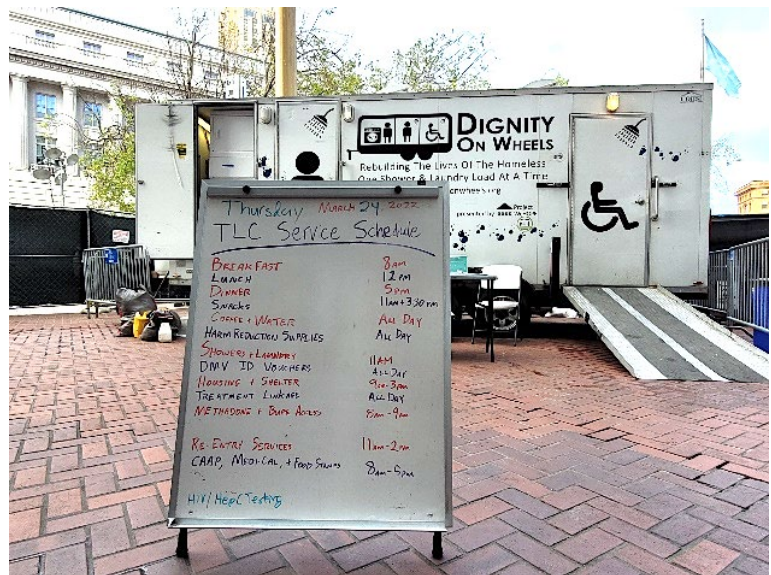 DIGNITY
ON WHEELS
Rebuilding The Lives Of The Homeless
One Shower & Laundry Load At A Time
presented by
Project
Thursday MARCH 24, 2022
TLC Service Schedule
BREAKFAST 8AM
LUNCH 12 PM
DINNER 5PM
SNACKS 11AM + 3:30 PM
COFFEE + WATER ALL DAY
HARM REDUCTION SUPPLIES ALL DAY
SHOWERS + LAUNDRY 11AM
DMV ID VOUCHERS ALL DAY
HOUSING + SHELTER 9AM-3PM
TREATMENT LINKAGE ALL DAY
METHADONE + BUPE ACCESS 8AM-9PM
RE-ENTRY SERVICES 11AM-2PM
CAAP, MEDI-CAL, + FOOD STAMPS 8AM-5PM
HIV/HepC Testing